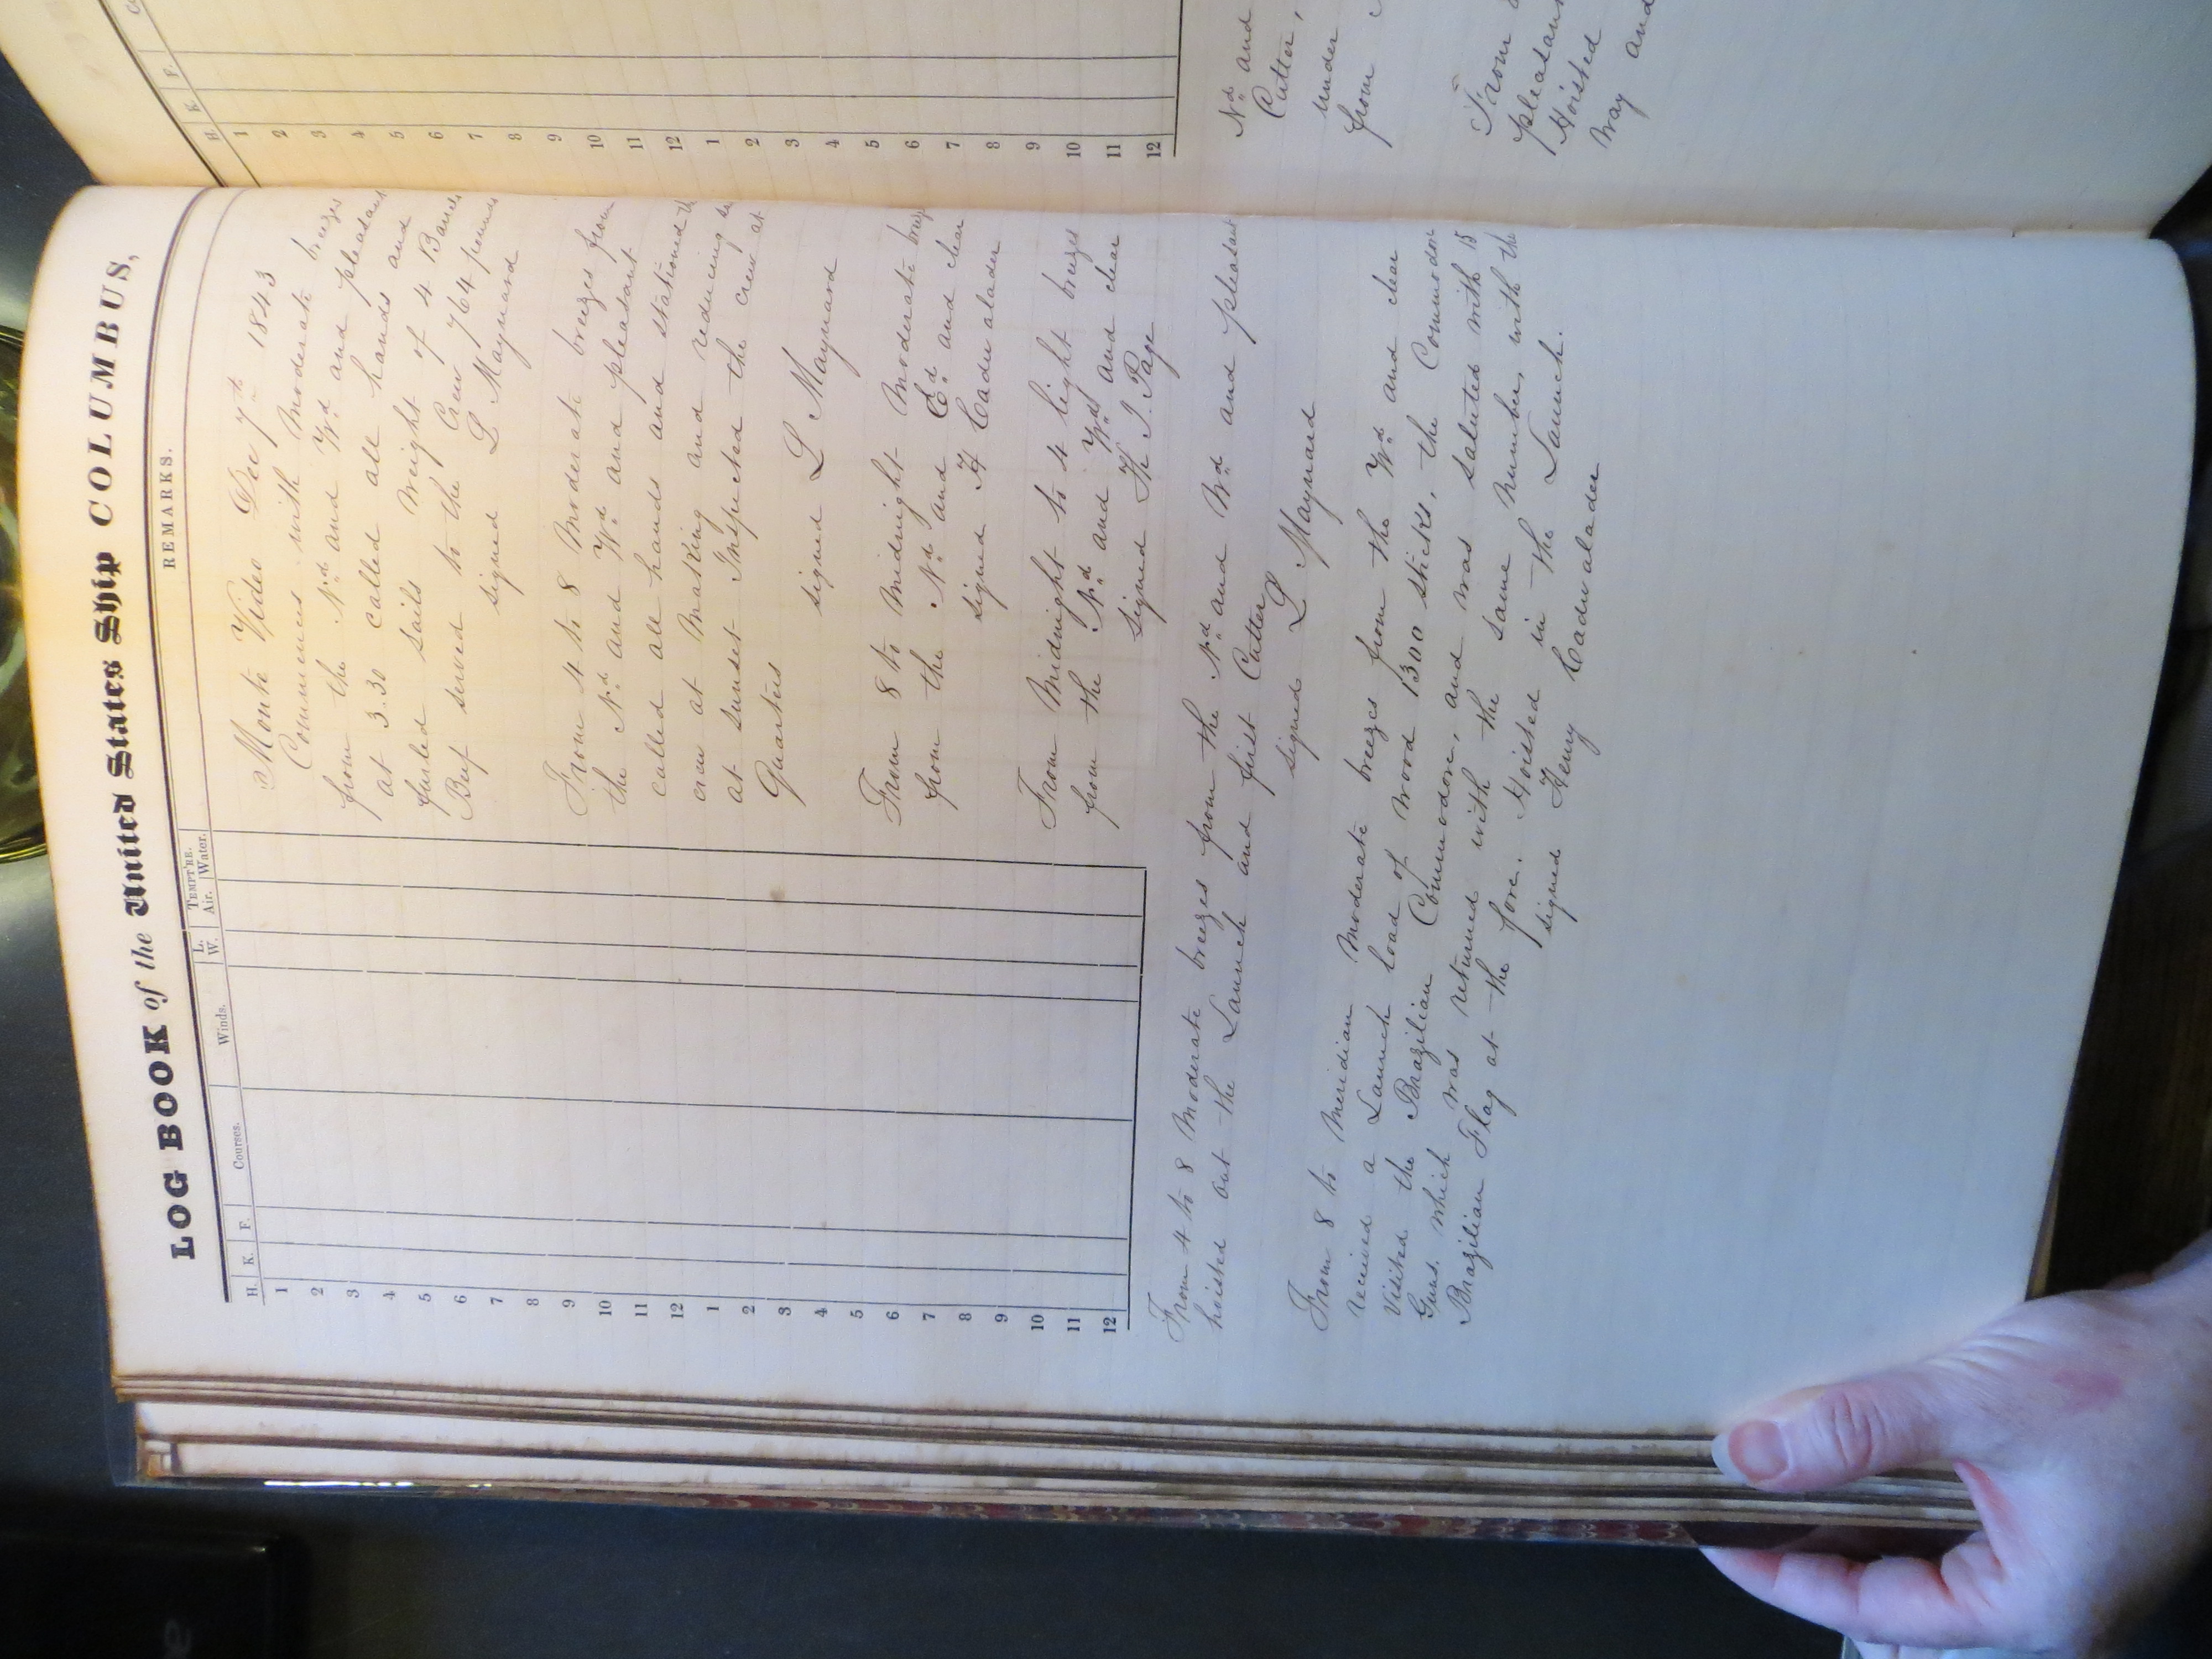 LOG BOOK of the United States Ship COLUMBUS,
H. K. F. Courses. Winds. L. W. TEMPT'RE. Air. Water. REMARKS.
1
2
3
4
5
6
7
8
9
10
11
12
1
2
3
4
5
6
7
8
9
10
11
12
Monte Video Dec 7th 1843
Commences with Moderate breezes
from the Nd and Wd and pleasant
at 3.30 called all hands and
furled sails Weight of 4 Bands
Beef served to the Crew 764 pounds
signed L Maynard
From 4 to 8 Moderate breezes from
the Nd and Wd and pleasant
called all hands and stationed the
crew at Making and reducing
at sunset Inspected the crew at
Quarters
signed L Maynard
From 8 to Midnight Moderate breezes
from the Nd and Ed and clear
signed H Cadwalader
From Midnight to 4 light breezes
from the Nd and Wd and clear
signed H. J. Page
From 4 to 8 Moderate breezes from the Nd and Wd and pleasant
hoisted out the Launch and first Cutter
signed L Maynard
From 8 to Meridian Moderate breezes from the Wd and clear
received a Launch load of Wood 1300 sticks, the Commodore
Visited the Brazilian Commodore, and was saluted with 15
Guns. which was returned with the same number, with the
Brazilian Flag at the fore. Hoisted in the Launch.
signed Henry Cadwalader
H. K. F.
1
2
3
4
5
6
7
8
9
10
11
12
1
2
3
4
5
6
7
8
9
10
11
12
Nd and
Cutter,
under
from
From
pleasant
Hoisted
way and